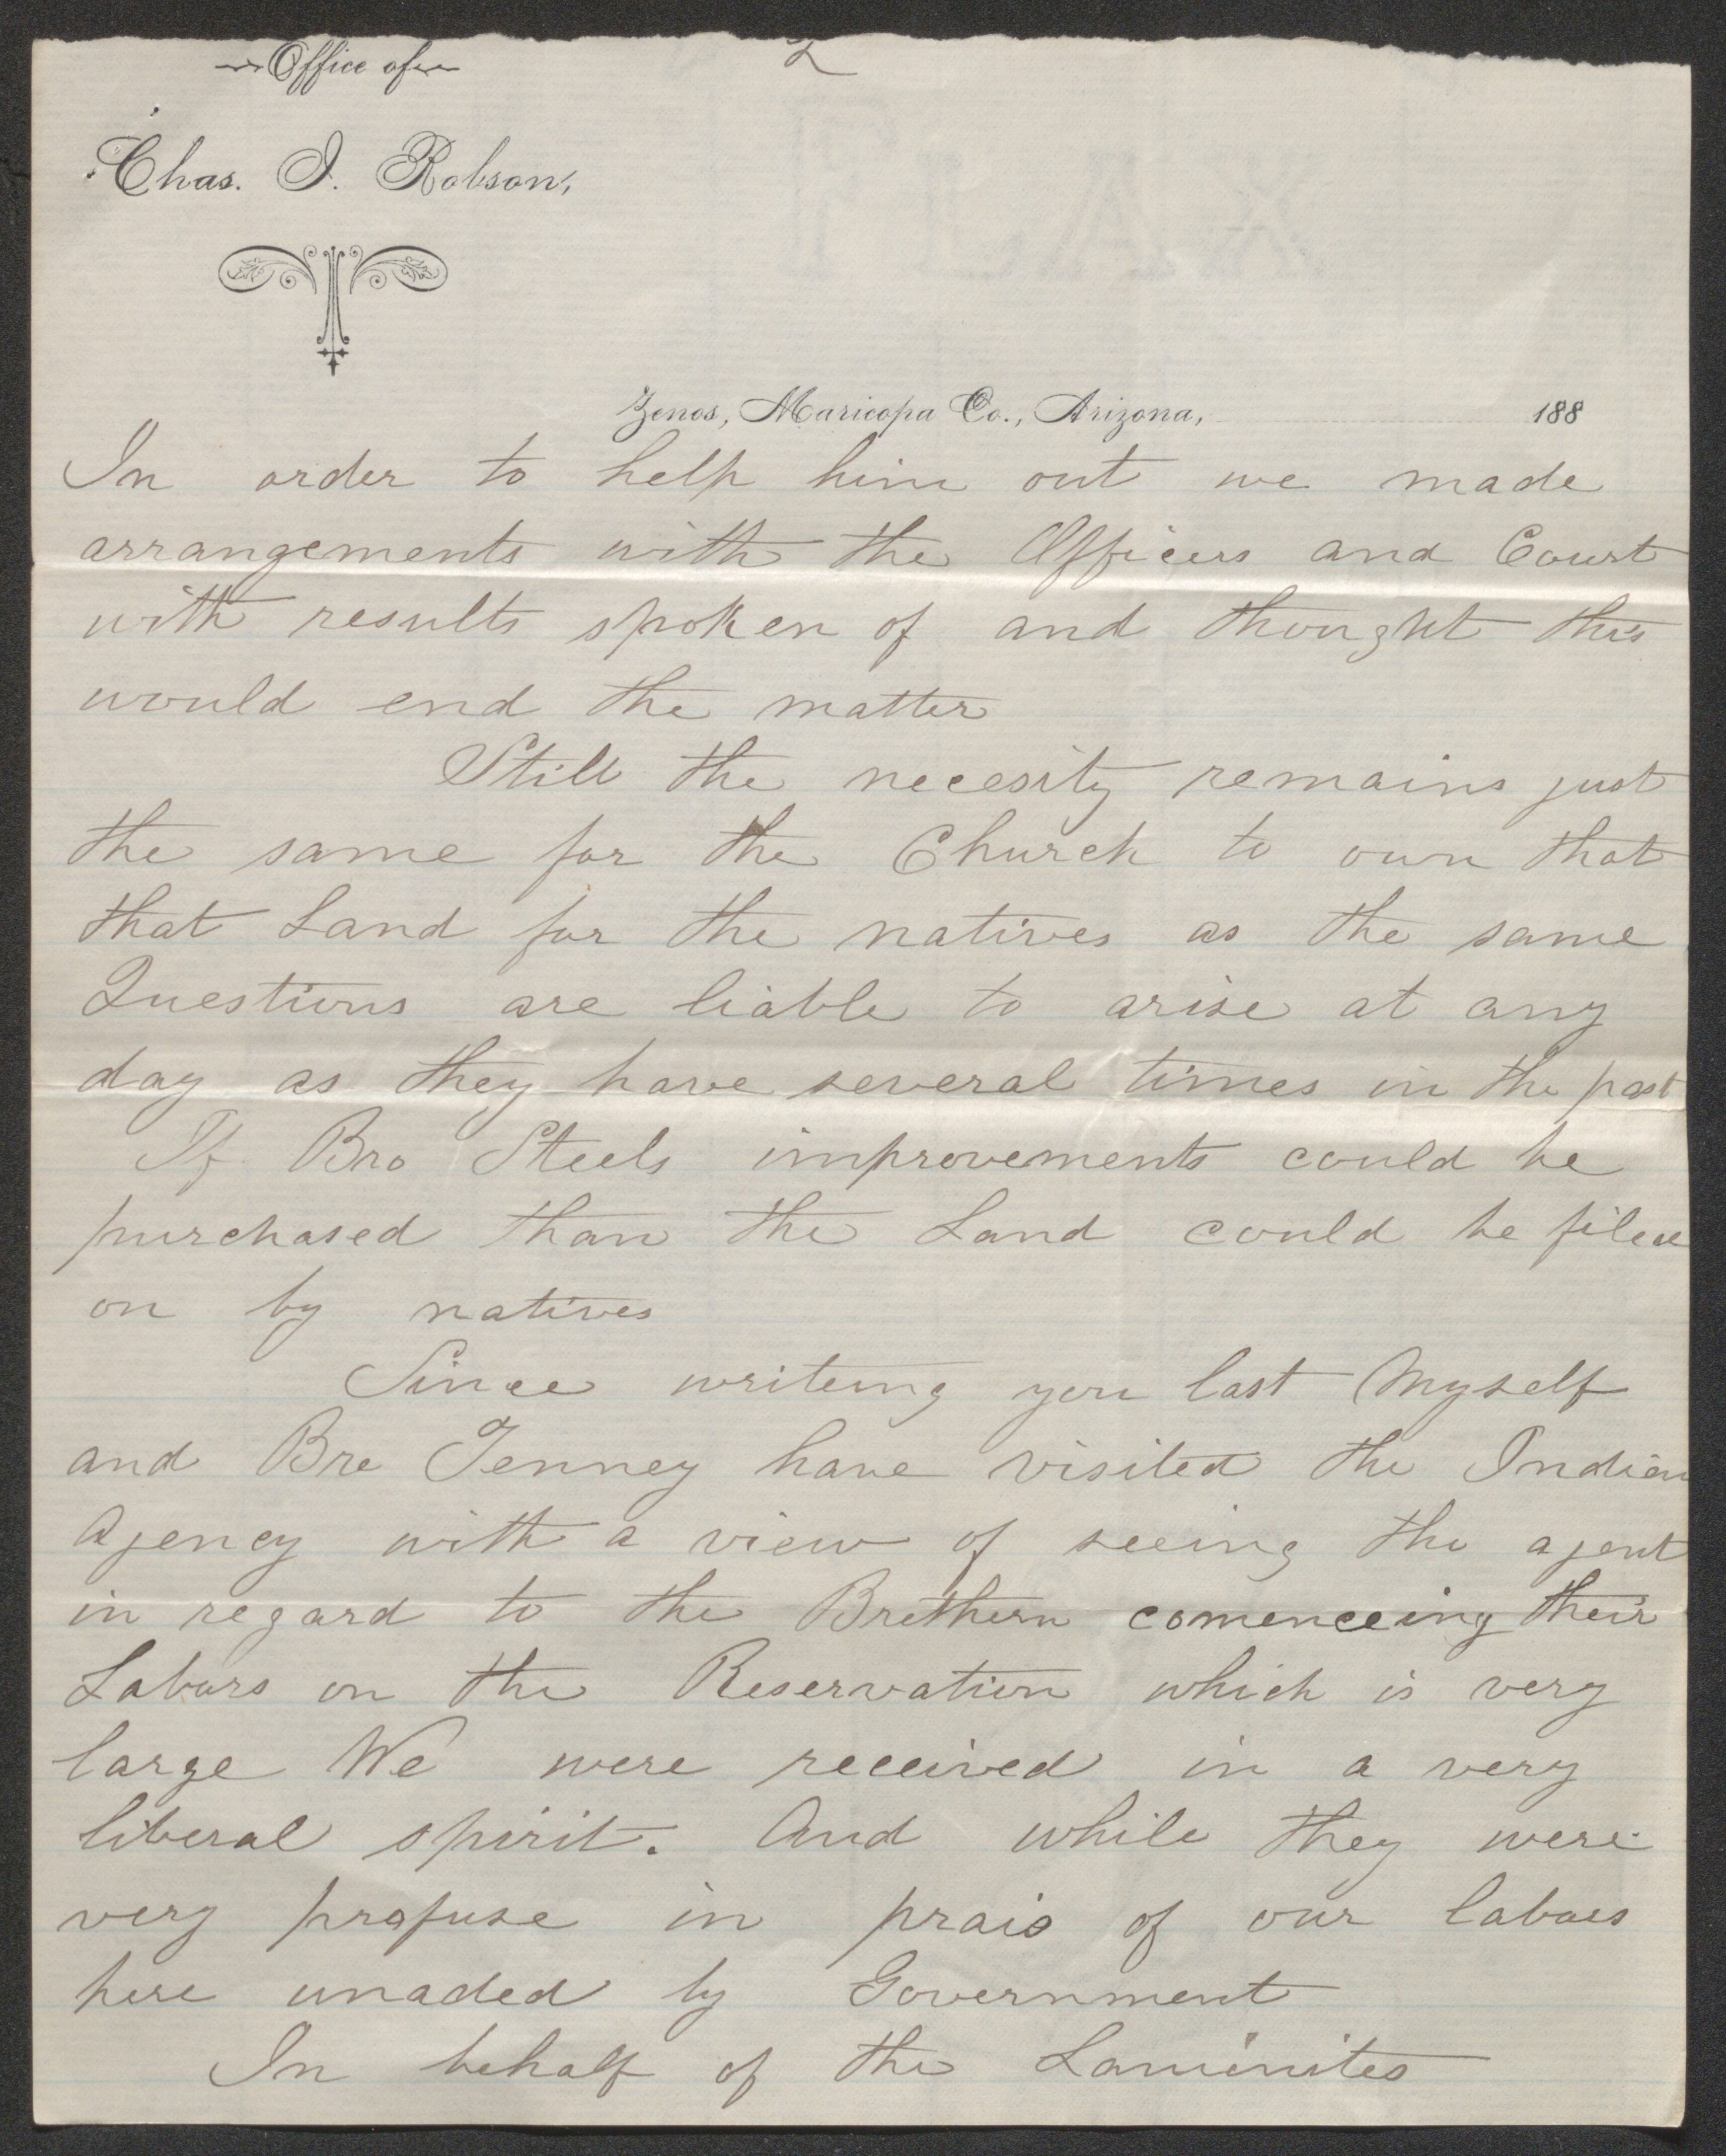 Office of
2
Chas. I. Robson,
Zenos, Maricopa Co., Arizona, 188
In order to help him out we made
arrangements with the Officers and Court
with results spoken of and thought this
would end the matter
Still the necesity remains just
the same for the Church to own that
that Land for the natives as the same
Questions are liable to arise at any
day as they have several times in the past
If Bro Steels improvements could be
purchased than the Land could be filed
on by natives
Since writeing you last Myself
and Bre Tenney have visited the Indian
Agency with a view of seeing the agent
in regard to the Brethern comenceing their
Labors on the Reservation which is very
large We were received in a very
liberal spirit. And while they were
very profuse in prais of our labors
here unaded by Government
In behalf of the Laminites